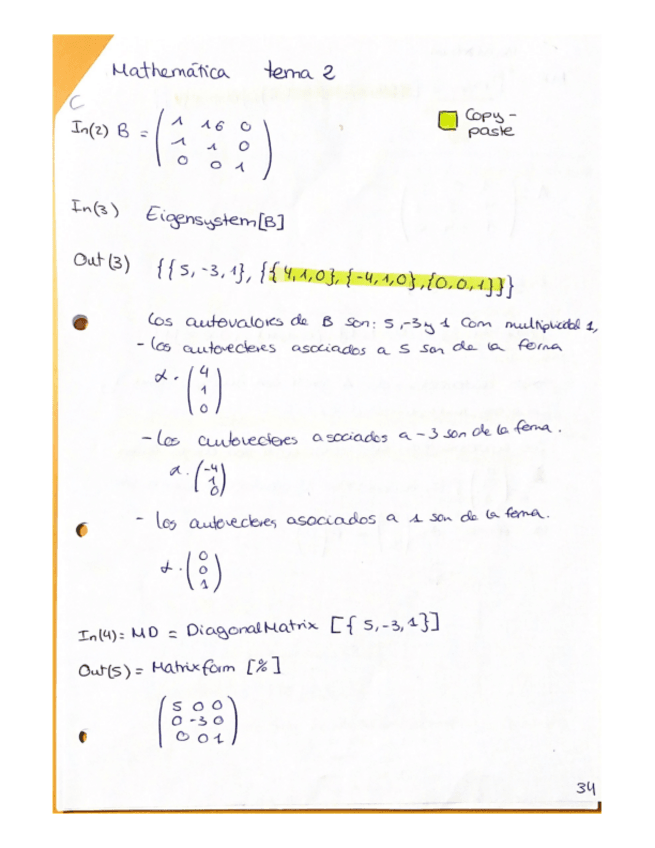 Mathemática tema 2
C
Copy-
paste
In(2) B = ( 1 16 0
1 1 0
0 0 1 )
In(3) Eigensystem[B]
Out(3) {{5,-3,1},{{4,1,0},{-4,1,0},{0,0,1}}}
Los autovalores de B son: 5,-3 y 1 con multiplicidad 1,
- los autovectores asociados a 5 son de la forma
α · ( 4
1
0 )
- Los autovectores asociados a -3 son de la forma.
α · ( -4
1
0 )
- los autovectores asociados a 1 son de la forma.
α · ( 0
0
1 )
In(4) = MD = DiagonalMatrix [{5,-3,1}]
Out(5) = Matrixform [%]
( 5 0 0
0 -3 0
0 0 1 )
34